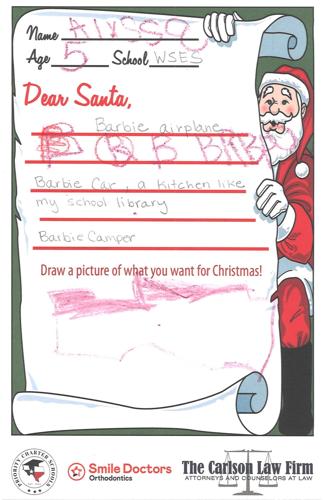 Name Alyssa
Age 5 School WSES
Dear Santa,
Barbie airplane
Barbie Car, a kitchen like
my school library
Barbie Camper
Draw a picture of what you want for Christmas!
PRIORITY CHARTER SCHOOLS
Smile Doctors
Orthodontics
The Carlson Law Firm
ATTORNEYS AND COUNSELORS AT LAW